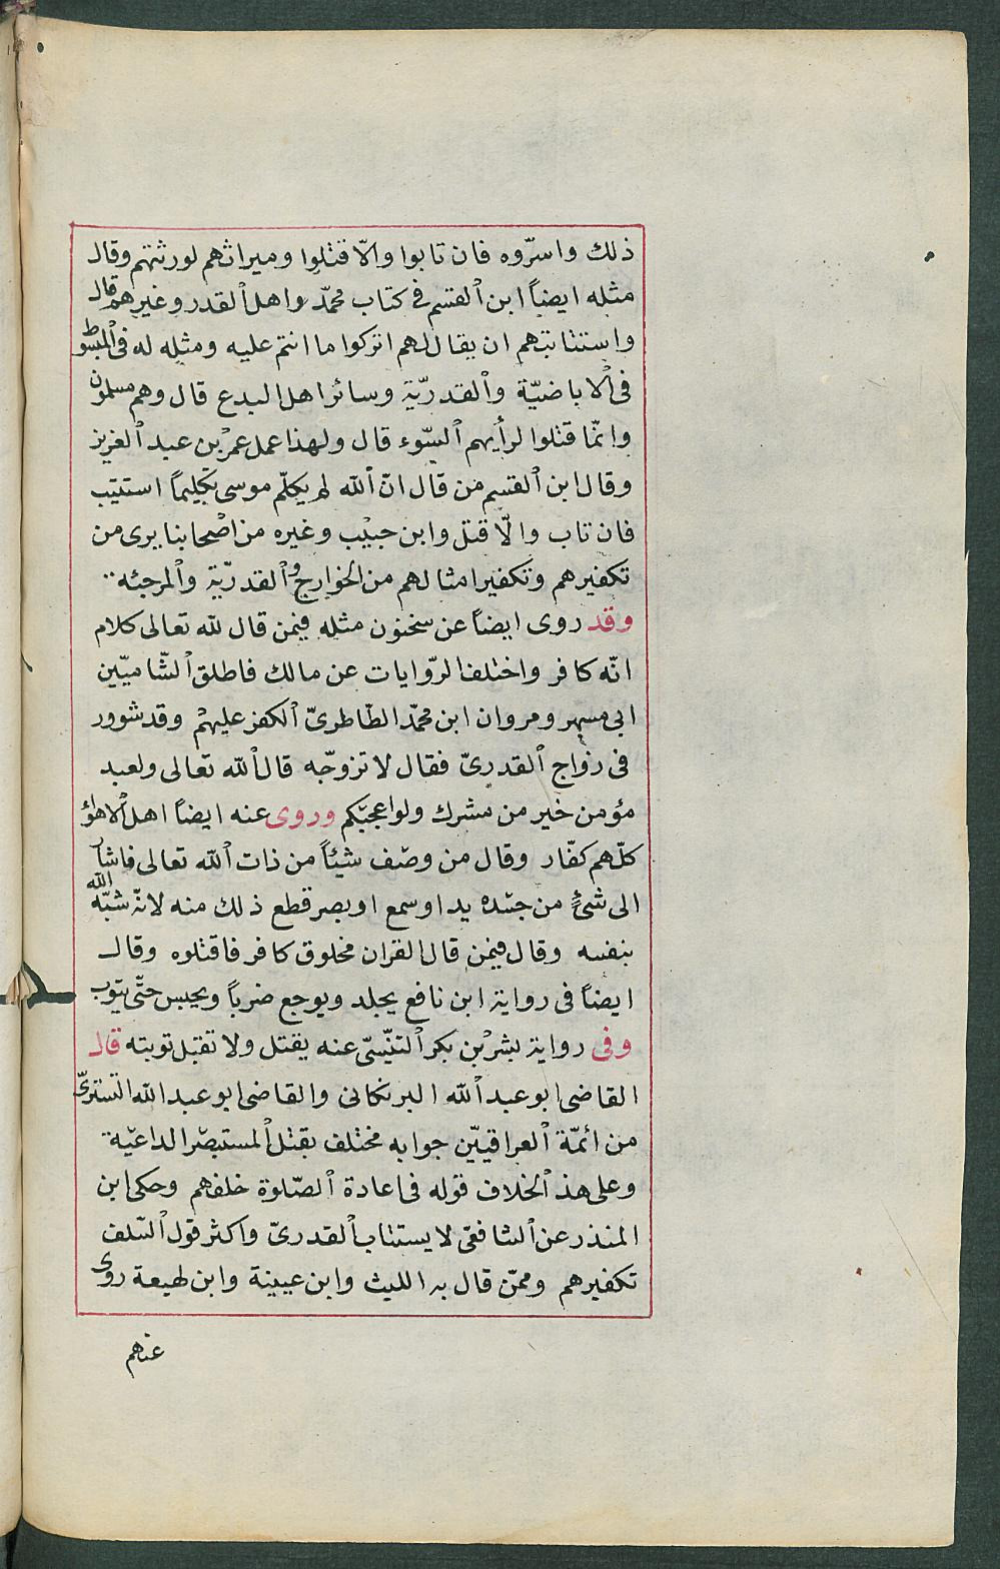 ذلك واسرّوه فان تابوا والّا قتلوا وميراثهم لورثتهم وقال
مثله ايضاً ابن القسم فى كتاب محمّد واهل القدر وغيرهم قال
واستتابتهم ان يقال لهم اتركوا ما انتم عليه ومثله له فى المبسوط
فى الاباضيّة والقدريّة وسائر اهل البدع قال وهم مسلمون
وانّما قتلوا لرأيهم السّوء قال ولهذا عمل عمر بن عبد العزيز
وقال ابن القسم من قال انّ الله لم يكلّم موسى تكليماً استتيب
فان تاب والّا قتل وابن حبيب وغيره من اصحابنا يرى من
تكفيرهم وتكفير امثالهم من الخوارج والقدريّة والمرجئه
وقد روى ايضاً عن سحنون مثله فيمن قال لله تعالى كلام
انّه كافر واختلف الرّوايات عن مالك فاطلق الشّاميّين
ابى مسهر ومروان ابن محمّد الطّاطرىّ الكفر عليهم وقد شوور
فى زواج القدرىّ فقال لا تزوّجه قال الله تعالى ولعبد
مؤمن خير من مشرك ولو اعجبكم وروى عنه ايضاً اهل الاهوٓاء
كلّهم كفّار وقال من وصف شيئاً من ذات الله تعالى فاشار
الى شئٍ من جسده يد او سمع او بصر قطع ذلك منه لانّه شبّه الله
بنفسه وقال فيمن قال القران مخلوق كافر فاقتلوه وقال
ايضاً فى رواية ابن نافع يجلد ويوجع ضرباً ويحبس حتّى يتوب
وفى رواية بشر بن بكر التنّيسىّ عنه يقتل ولا تقبل توبته قال
القاضى ابو عبد الله البرنكانى والقاضى ابو عبد الله التسترىّ
من ائمّة العراقيّين جوابه مختلف بقتل المستبصر الداعية
وعلى هذ الخلاف قوله فى اعادة الصّلوة خلفهم وحكى ابن
المنذر عن الشافعى لا يستتاب القدرىّ واكثر قول السّلف
تكفيرهم وممّن قال به الليث وابن عيينة وابن لهيعة روى
عنهم